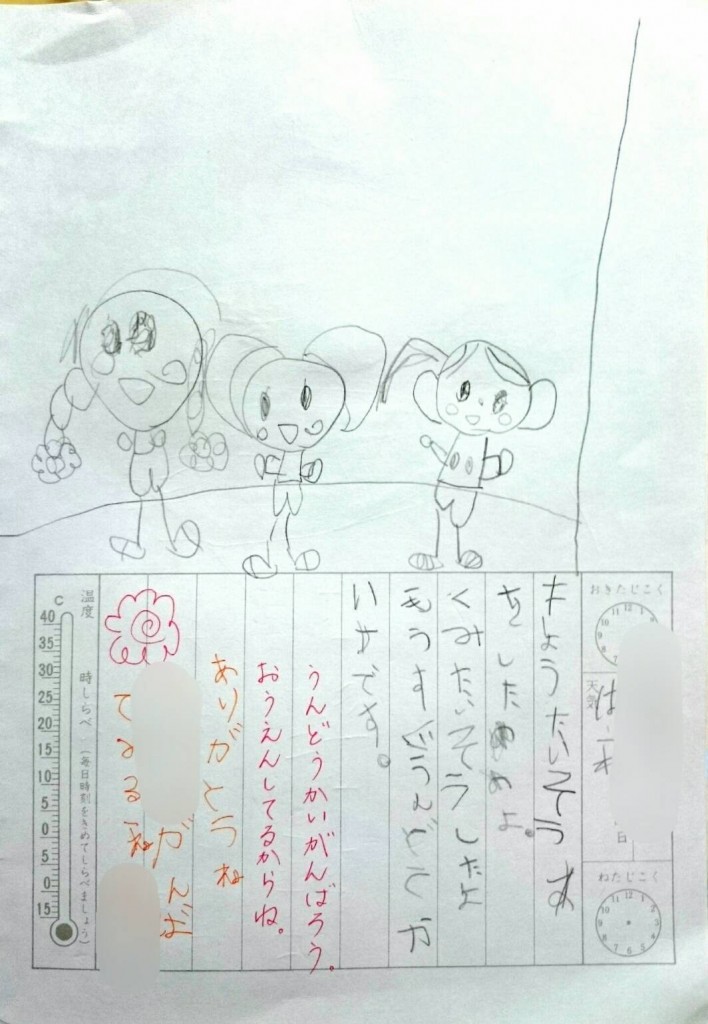 おきたじこく
12 11 10 9 8 7 6
天気
はれ
日
ねたじこく
12 1 2 3 4 5 6 7 8 9 10 11
きょうたいそう
をしたのよ。
くみたいそうしたよ
もうすぐうんどうか
いです。
うんどうかいがんばろう。
おうえんしてるからね。
ありがとうね
がんば
てるね
時しらべ (毎日時刻をきめてしらべましょう)
温度
C
40
35
30
25
20
15
10
5
0
5
10
15